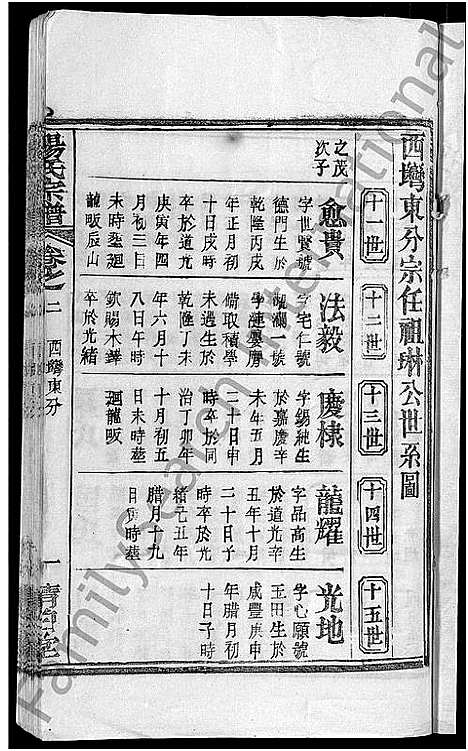 西塆東分宗任祖琳公世系圖
十一世
十二世
十三世
十四世
十五世
之茂
次子
愈貴
字世賢號
德門生於
乾隆丙戌
年正月初
十日戌時
卒於道光
庚寅年四
月初三日
未時塟廻
龍畈辰山
法毅
字宅仁號
備取積學
未遇生於
乾隆丁未
年六月十
八日午時
欽賜木鐸
卒於光緒
慶棣
字錫純生
於嘉慶辛
未年五月
二十日申
時卒於同
治丁卯年
十月初五
日未時塟
廻龍畈
龍耀
字品高生
於道光辛
丑年十月
二十日子
時卒於光
緒己五年
腊月十九
日寅時塟
光地
字心願號
玉田生於
咸豐庚申
年腊月初
十日子時
楊氏宗譜
卷之二
西塆東分
一
FamilySearch International